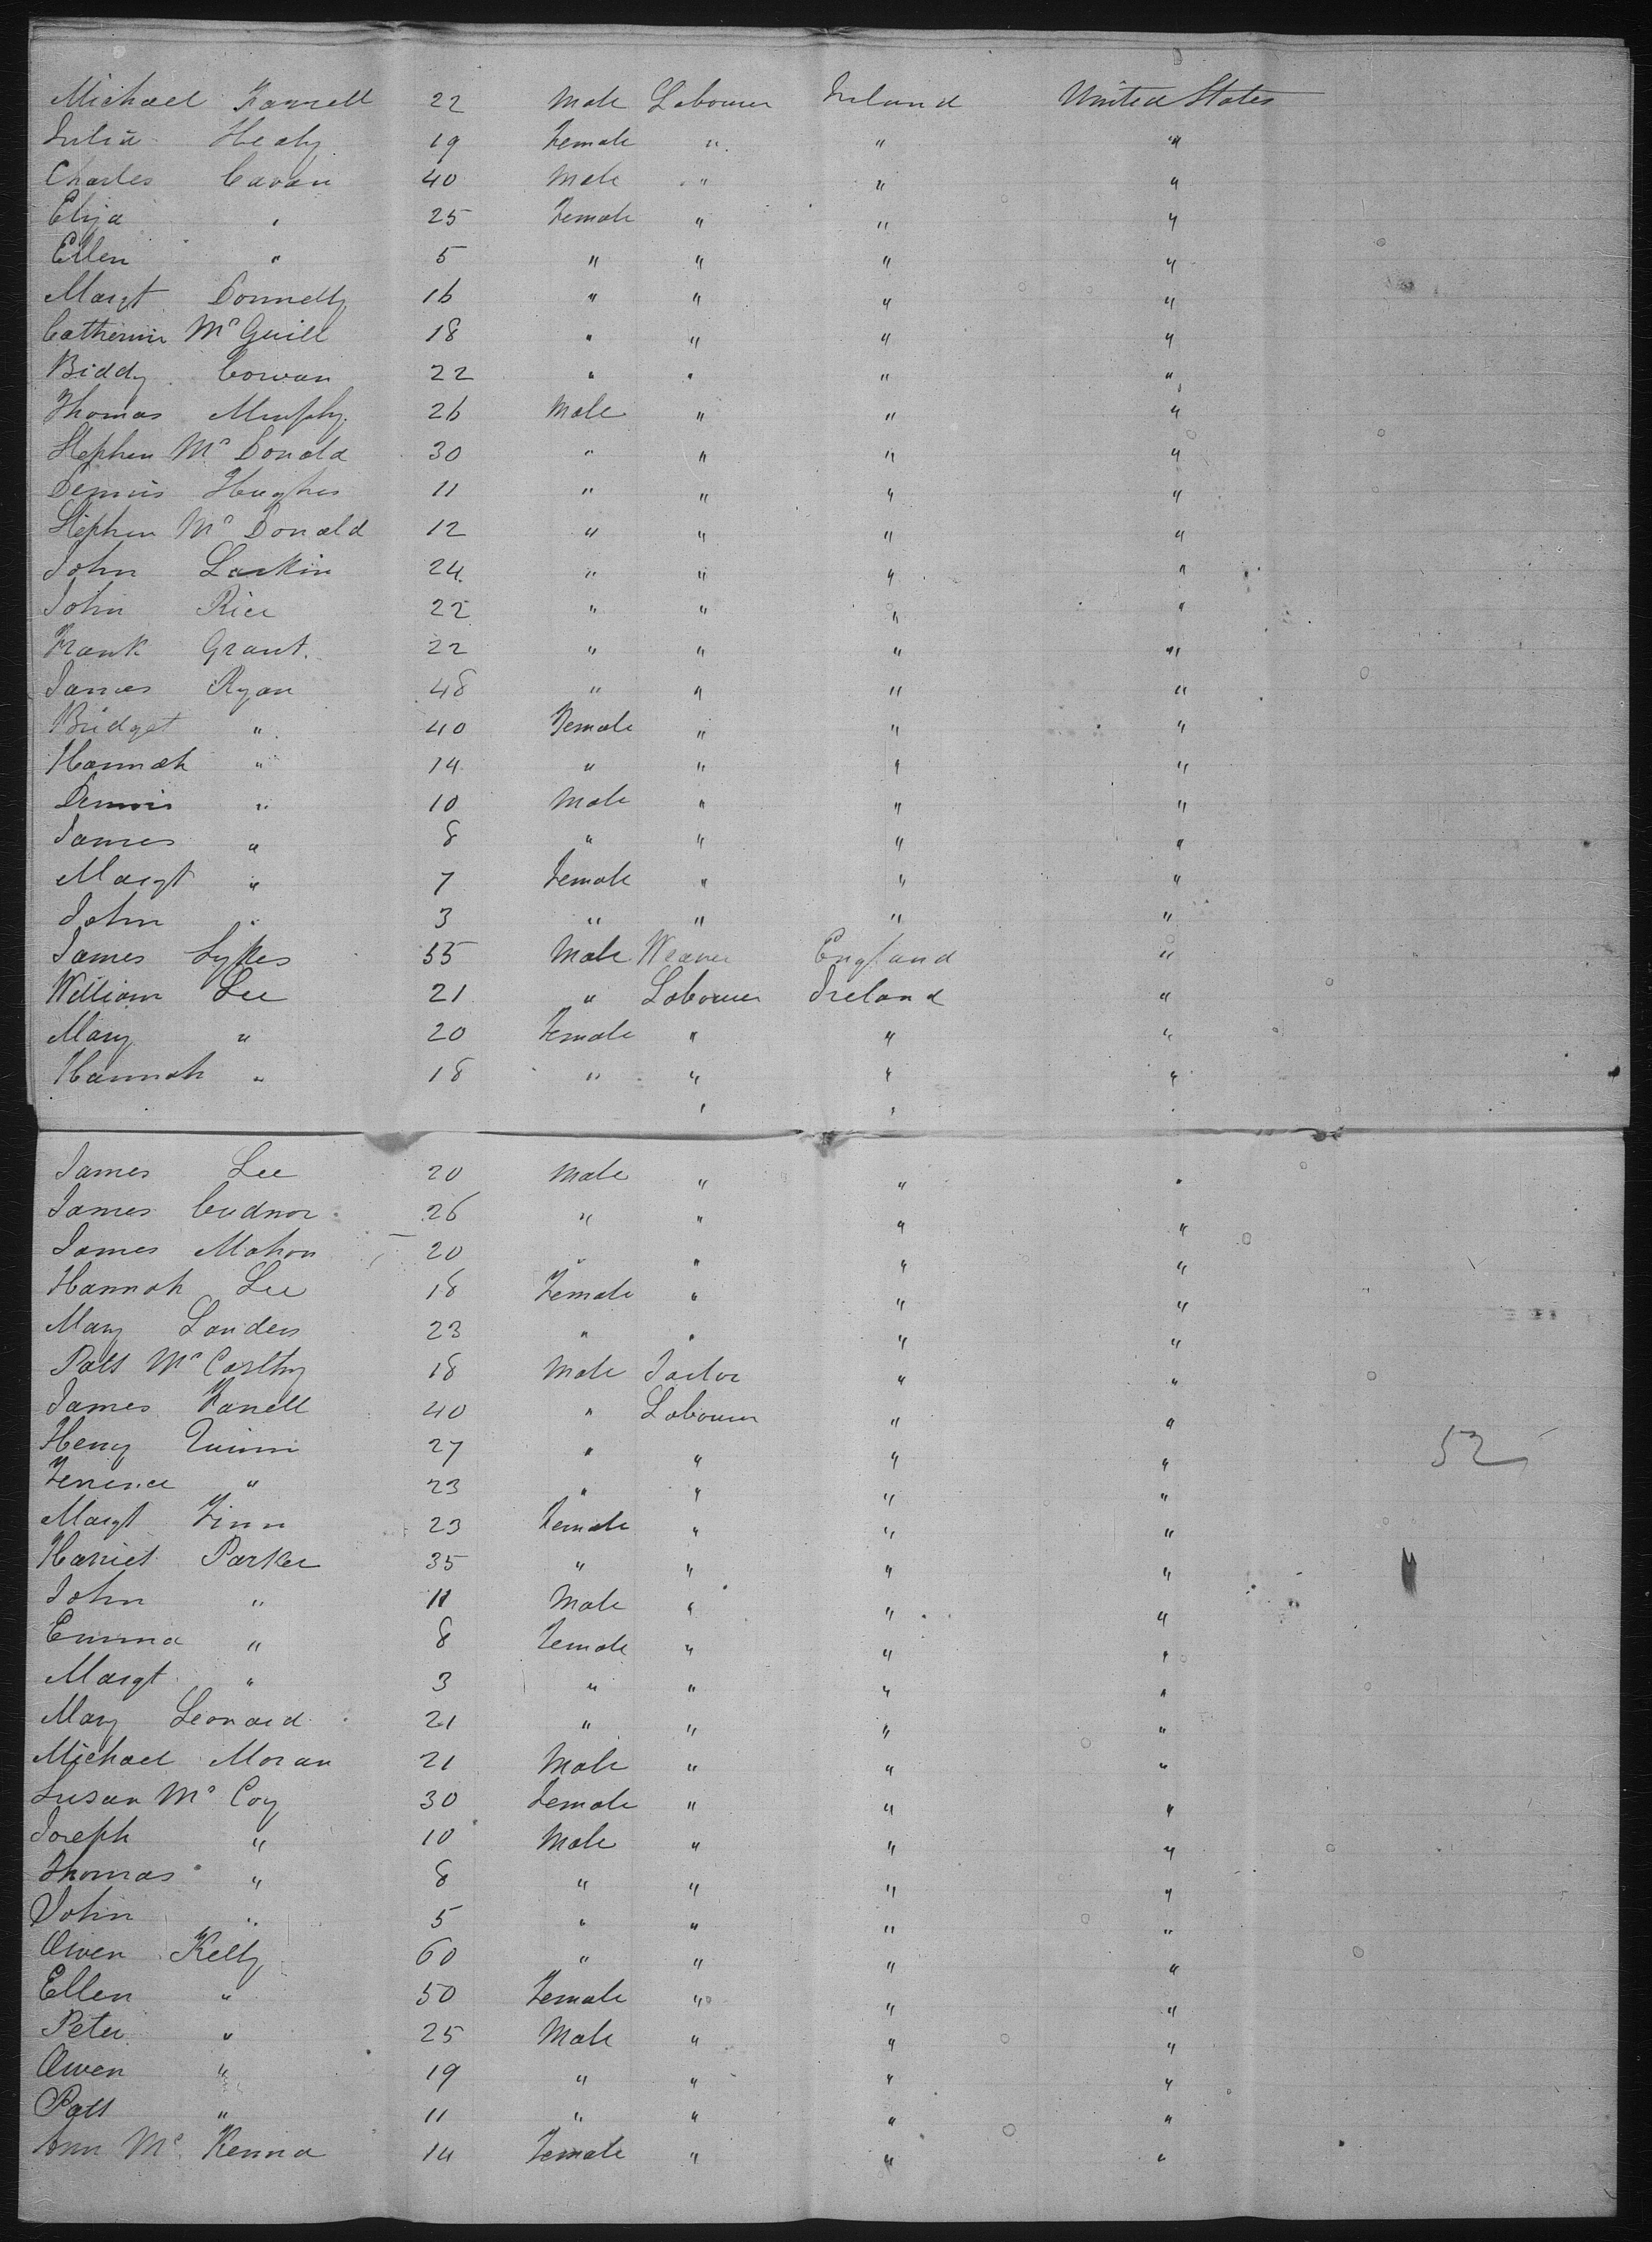 Michael Farrell 22 Male Labourer Ireland United States
Julia Healy 19 Female " " "
Charles Cavan 40 Male " " "
Eliza " 25 Female " " "
Ellen " 5 " " " "
Margt Donnelly 16 " " " "
Catherine McGuill 18 " " " "
Biddy Cowan 22 " " " "
Thomas Murphy 26 Male " " "
Stephen Mc Donald 30 " " " "
Dennis Hughes 11 " " " "
Stephen Mc Donald 12 " " " "
John Larkin 24 " " " "
John Rice 22 " " " "
Frank Grant. 22 " " " "
James Ryan 48 " " " "
Bridget " 40 Female " " "
Hannah " 14 " " " "
Dennis " 10 Male " " "
James " 8 " " " "
Margt " 7 Female " " "
John " 3 " " " "
James Sykes 35 Male Weaver England "
William Lee 21 " Labourer Ireland "
Mary " 20 Female " " "
Hannah " 18 " " " "
" "
James Lee 20 Male " " "
James Cudnor 26 " " " "
James Mahon 20 " " " "
Hannah Lee 18 Female " " "
Mary Landers 23 " " " "
Patt Mc Carthy 18 Male Tailor " "
James Farrell 40 " Labourer " "
Henry Quinn 27 " " " "
Terrence " 23 " " " "
Margt Finn 23 Female " " "
Harriet Parker 35 " " " "
John " 11 Male " " "
Emma " 8 Female " " "
Margt " 3 " " " "
Mary Leonard 21 " " " "
Michael Moran 21 Male " " "
Susan Mc Coy 30 Female " " "
Joseph " 10 Male " " "
Thomas " 8 " " " "
John " 5 " " " "
Owen Kelly 60 " " " "
Ellen " 50 Female " " "
Peter " 25 Male " " "
Owen " 19 " " " "
Patt " 11 " " " "
Ann Mc Kenna 14 Female " " "
52